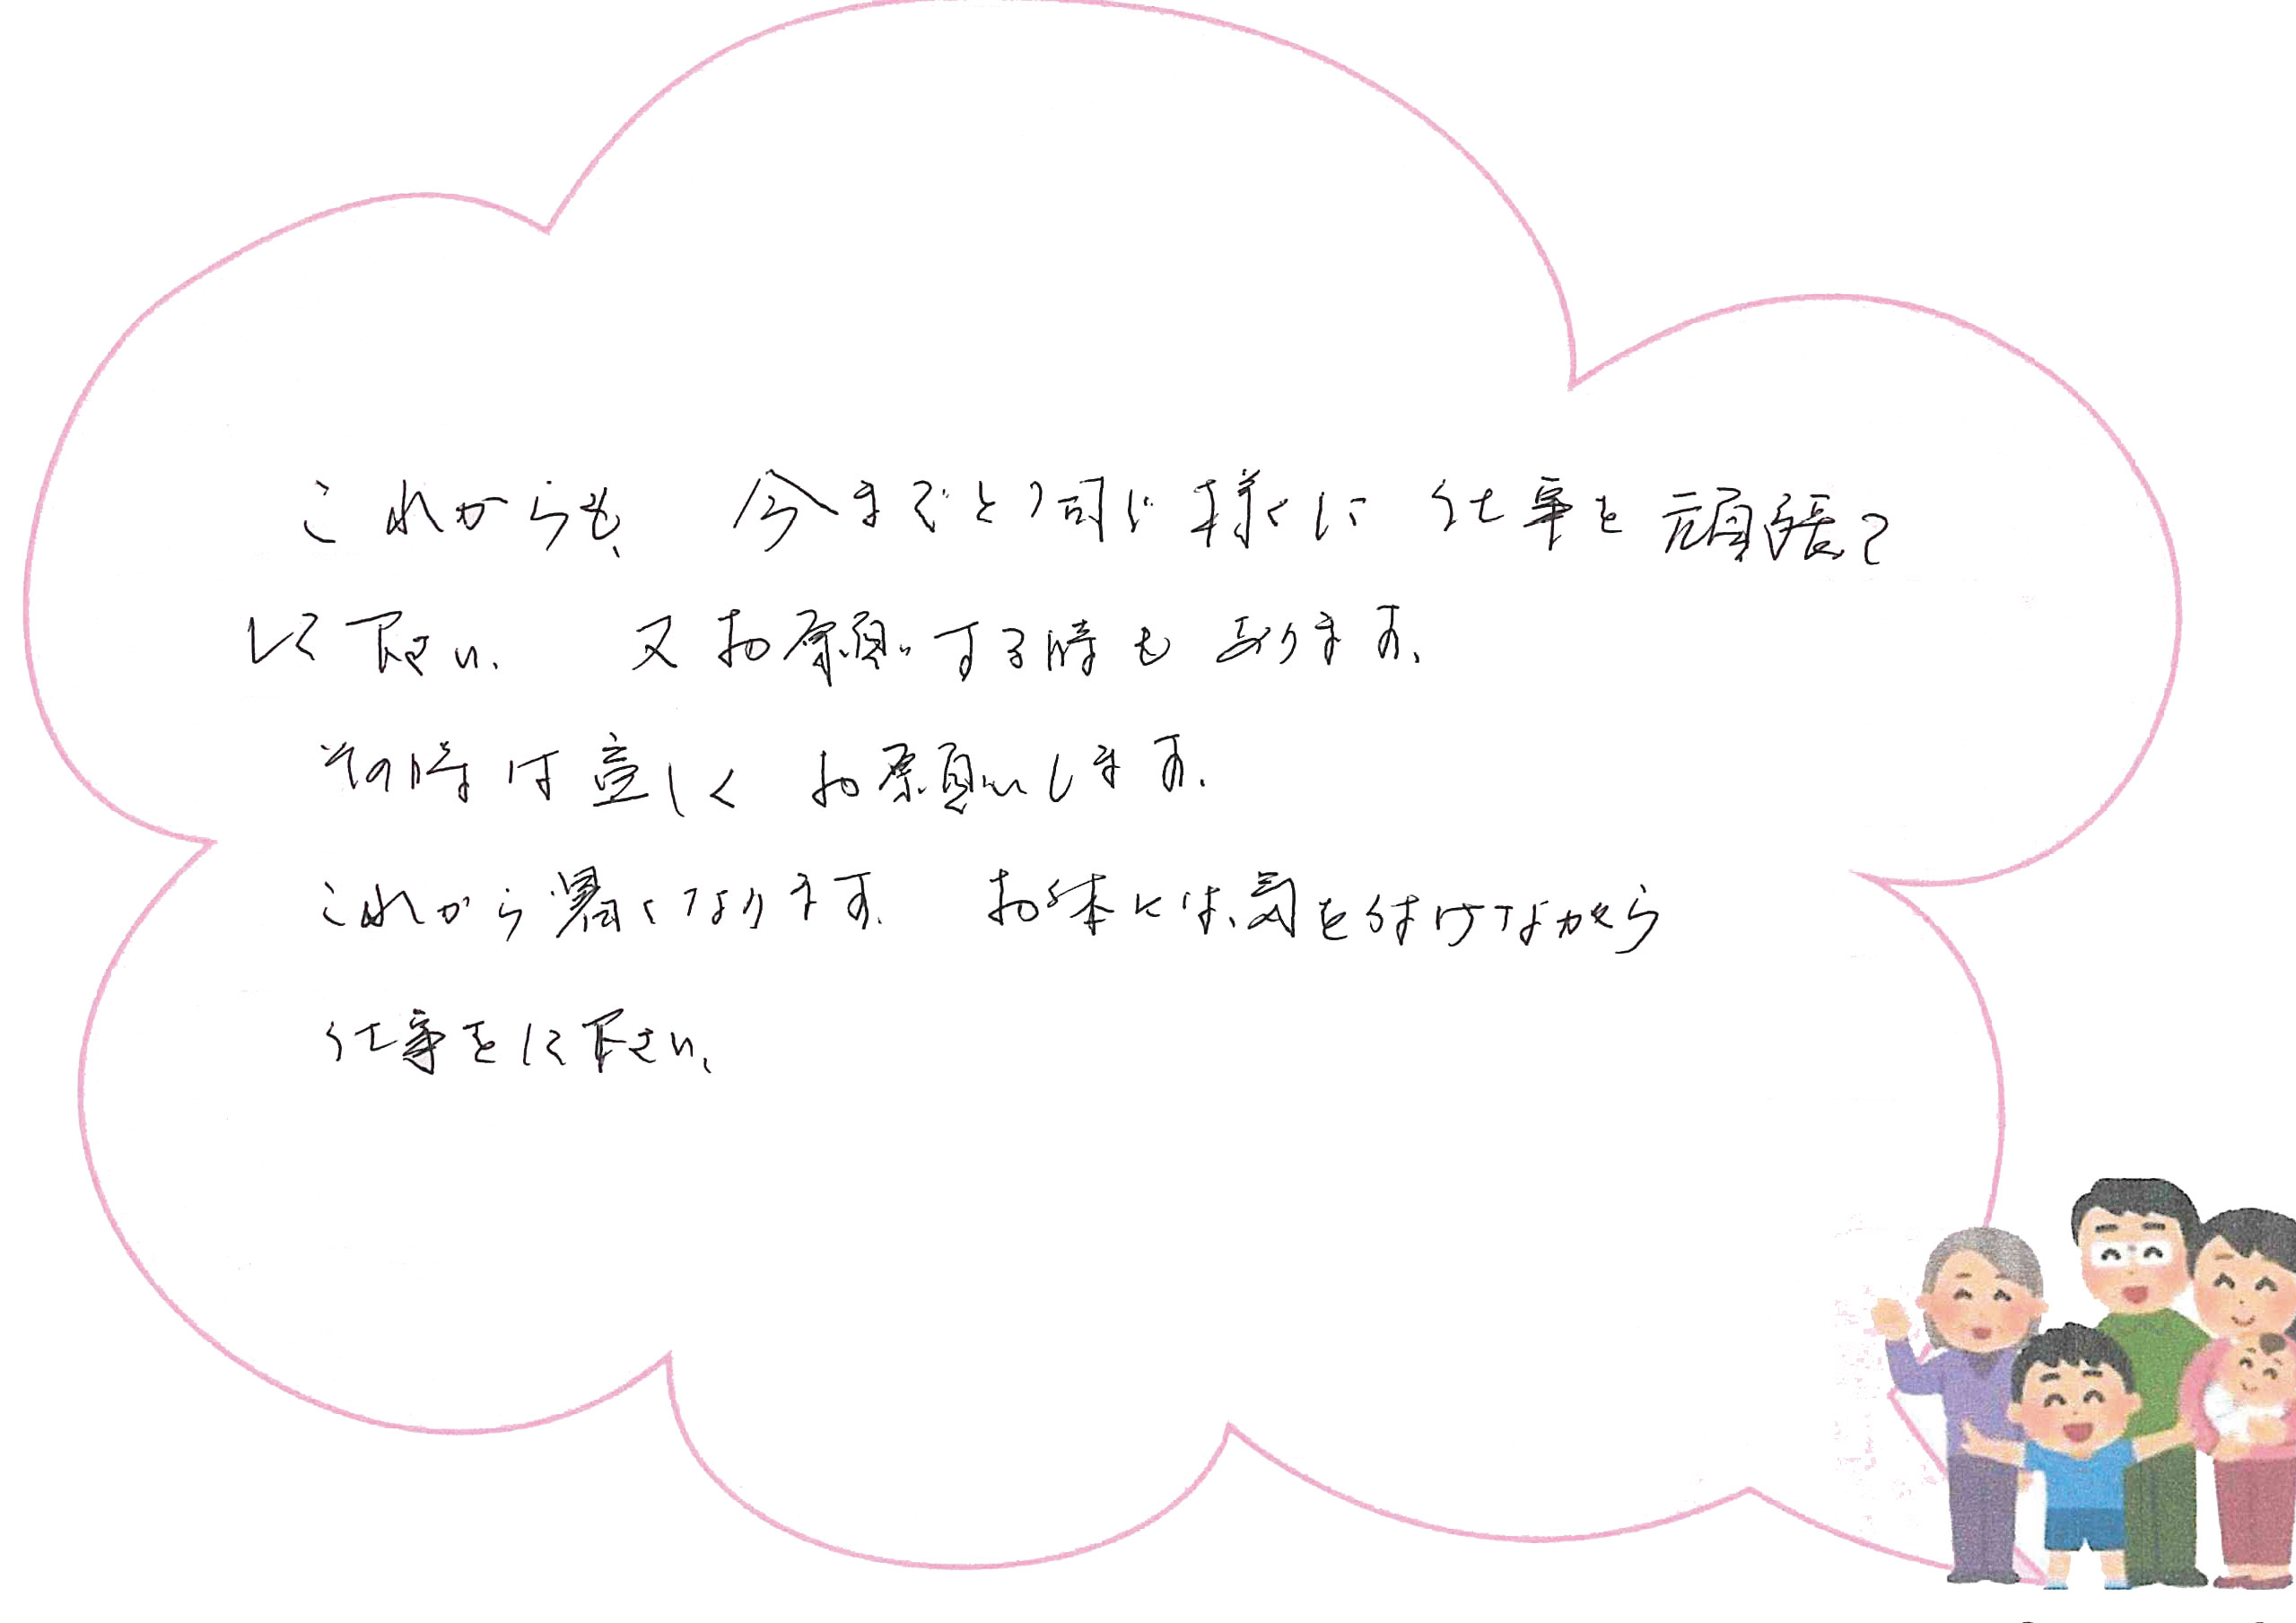 これからも、今までと同じ様に仕事を頑張って
して下さい。又お願いする時もあります。
その時は宜しくお願いします。
これから暑くなります。お体には、気を付けながら
仕事をして下さい。